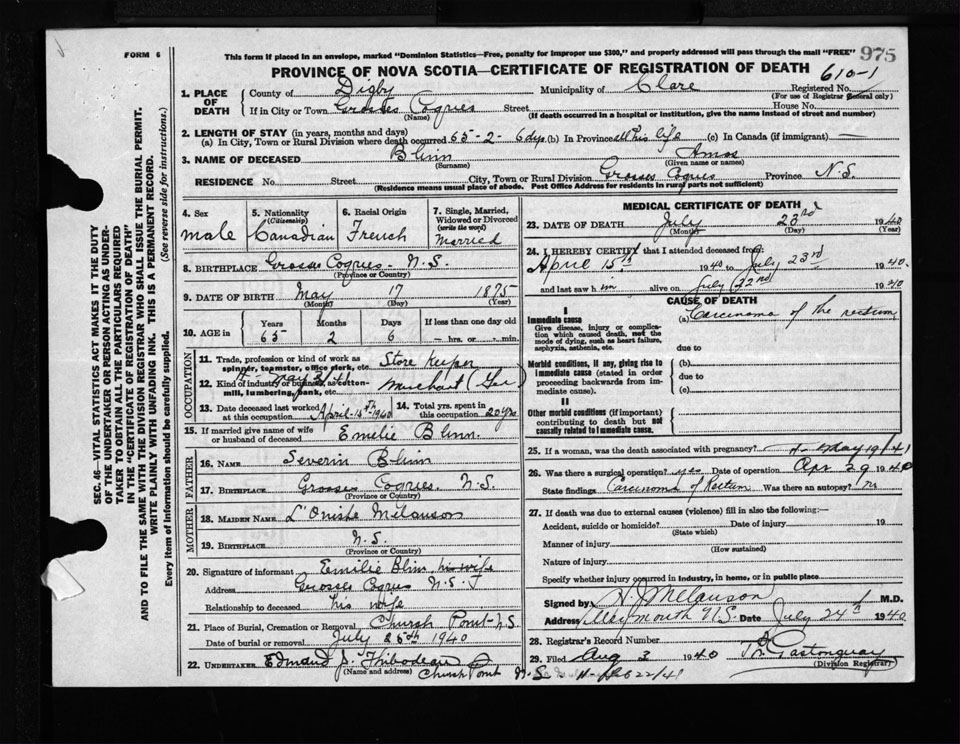 FORM 6
This form if placed in an envelope, marked "Dominion Statistics—Free, penalty for improper use $300," and properly addressed will pass through the mail "FREE"
975
PROVINCE OF NOVA SCOTIA—CERTIFICATE OF REGISTRATION OF DEATH
610-1
1. PLACE OF DEATH
County of Digby Municipality of Clare Registered No.
(For use of Registrar General only)
If in City or Town Grosses Coques Street House No.
(Name) (If death occurred in a hospital or institution, give the name instead of street and number)
2. LENGTH OF STAY (in years, months and days)
(a) In City, Town or Rural Division where death occurred 65-2-6dys (b) In Province all his life (c) In Canada (if immigrant) —
3. NAME OF DECEASED Blinn Amos
(Surname) (Given name or names)
RESIDENCE No. Street City, Town or Rural Division Grosses Coques Province N.S.
(Residence means usual place of abode. Post Office Address for residents in rural parts not sufficient)
SEC. 46—VITAL STATISTICS ACT MAKES IT THE DUTY
OF THE UNDERTAKER OR PERSON ACTING AS UNDER-
TAKER TO OBTAIN ALL THE PARTICULARS REQUIRED
IN THE "CERTIFICATE OF REGISTRATION OF DEATH"
AND TO FILE THE SAME WITH THE DIVISION REGISTRAR WHO SHALL ISSUE THE BURIAL PERMIT.
WRITE PLAINLY WITH UNFADING INK. THIS IS A PERMANENT RECORD.
Every item of information should be carefully supplied. (See reverse side for instructions.)
4. Sex
male
5. Nationality
(Citizenship)
Canadian
6. Racial Origin
French
7. Single, Married, Widowed or Divorced
(write the word)
Married
8. BIRTHPLACE Grosses Coques - N.S.
(Province or Country)
9. DATE OF BIRTH May 17 1875
(Month) (Day) (Year)
10. AGE in
Years Months Days If less than one day old
65 2 6 hrs. or min.
OCCUPATION
11. Trade, profession or kind of work as spinner, teamster, office clerk, etc. Store Keeper
12. Kind of industry or business, as cotton-mill, lumbering, bank, etc.
13. Date deceased last worked at this occupation April-15th-1940
14. Total yrs. spent in this occupation 20 yrs
15. If married give name of wife or husband of deceased Emilie Blinn.
FATHER
16. NAME Severin Blinn
17. BIRTHPLACE Grosses Coques. N.S.
(Province or Country)
MOTHER
18. MAIDEN NAME Melanson
19. BIRTHPLACE N.S.
(Province or Country)
20. Signature of informant Emilie Blinn, his wife
Address Grosses Coques N.S.
Relationship to deceased his wife
21. Place of Burial, Cremation or Removal Church Point-N.S.
Date of burial or removal July 25th 1940
22. UNDERTAKER Edmund J. Thibodeau
(Name and address) Church Point N.S.
MEDICAL CERTIFICATE OF DEATH
23. DATE OF DEATH July 23rd 1940
(Month) (Day) (Year)
24. I HEREBY CERTIFY that I attended deceased from:
April 15th 1940 to July 23rd 1940.
and last saw him alive on July 22nd 1940
CAUSE OF DEATH
I
Immediate cause
Give disease, injury or complication, which caused death, not the mode of dying, such as heart failure, asphyxia, asthenia, etc.
(a) Carcinoma of the rectum
due to
Morbid conditions, if any, giving rise to immediate cause (stated in order proceeding backwards from immediate cause).
(b)
due to
(c)
II
Other morbid conditions (if important) contributing to death but not causally related to immediate cause.
25. If a woman, was the death associated with pregnancy? May 19/41
26. Was there a surgical operation? yes Date of operation Apr 29 1940
State findings Carcinoma of Rectum Was there an autopsy? no
27. If death was due to external causes (violence) fill in also the following:—
Accident, suicide or homicide? Date of injury 19
(State which)
Manner of injury
(How sustained)
Nature of injury
Specify whether injury occurred in industry, in home, or in public place
Signed by H. J. Melanson M.D.
Address Weymouth N.S. Date July 24th 1940
28. Registrar's Record Number
29. Filed Aug 3 1940 Gastonguay
(Division Registrar)